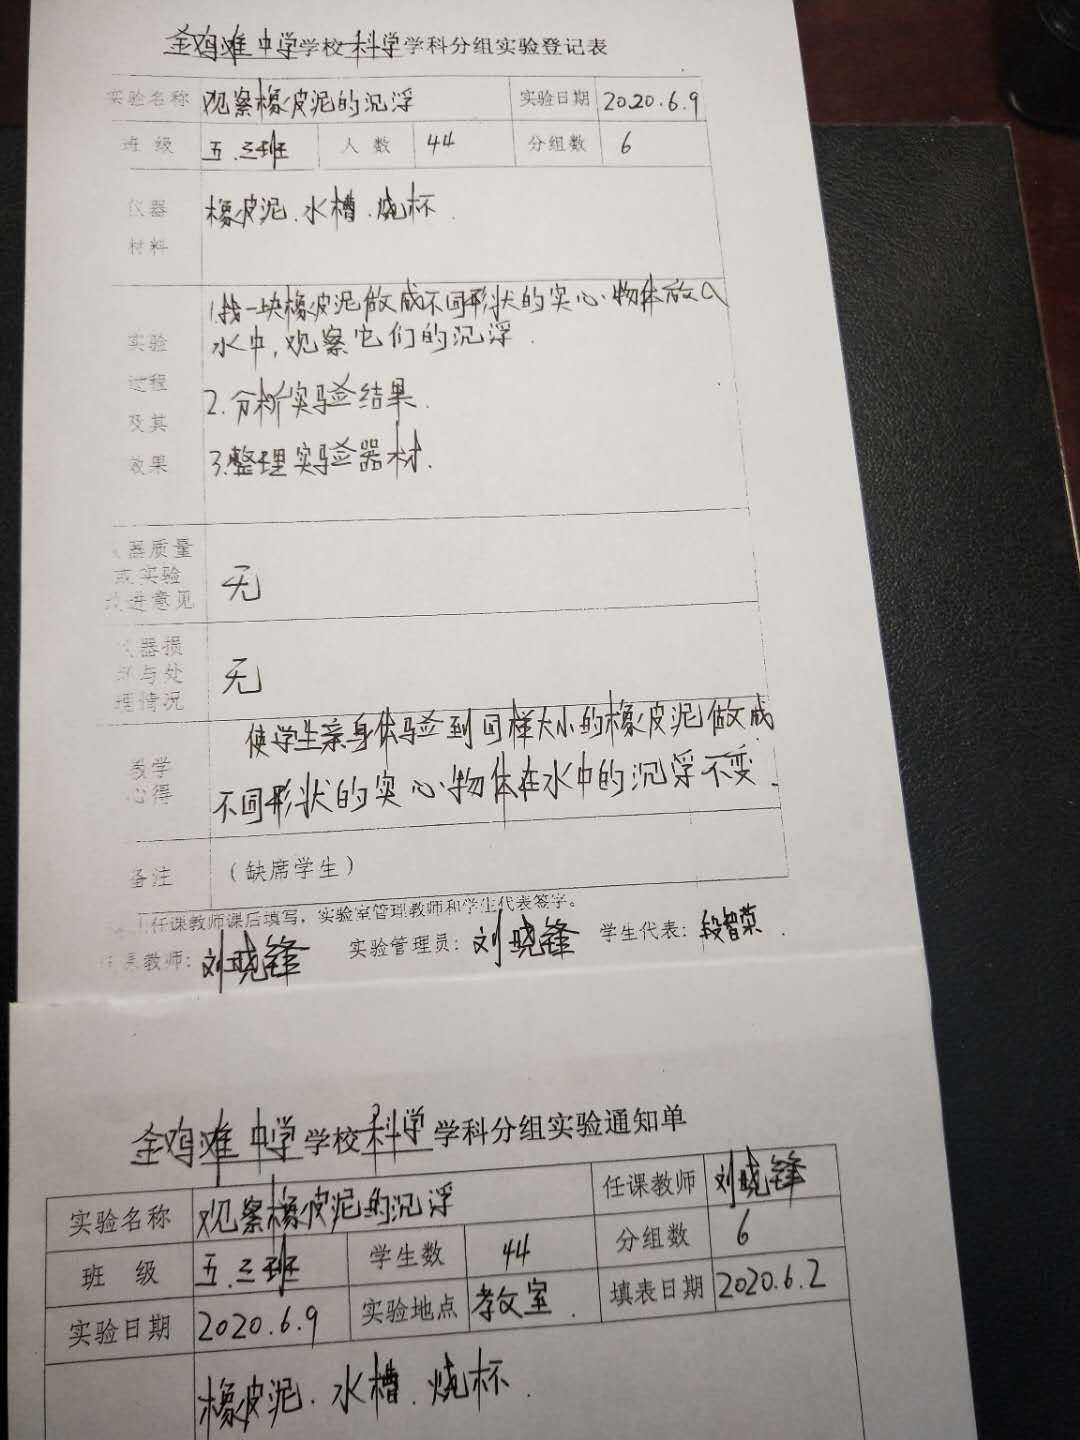 金鸡滩中学学校科学学科分组实验登记表
实验名称 观察橡皮泥的沉浮 实验日期 2020.6.9
班 级 五.三班 人 数 44 分组数 6
仪器
材料
橡皮泥.水槽.烧杯.
实验
过程
及其
效果
1.找一块橡皮泥做成不同形状的实心物体放入
水中,观察它们的沉浮.
2.分析实验结果.
3.整理实验器材.
器质量
或实验
改进意见
无
器损
坏与处
理情况
无
教学
心得
使学生亲身体验到同样大小的橡皮泥做成
不同形状的实心物体在水中的沉浮不变.
备注 (缺席学生)
任课教师课后填写,实验室管理教师和学生代表签字。
任课教师: 刘晓锋 实验管理员: 刘晓锋 学生代表: 段智荣.
金鸡滩中学学校科学学科分组实验通知单
实验名称 观察橡皮泥的沉浮 任课教师 刘晓锋
班 级 五.三班 学生数 44 分组数 6
实验日期 2020.6.9 实验地点 教室. 填表日期 2020.6.2
橡皮泥.水槽.烧杯.